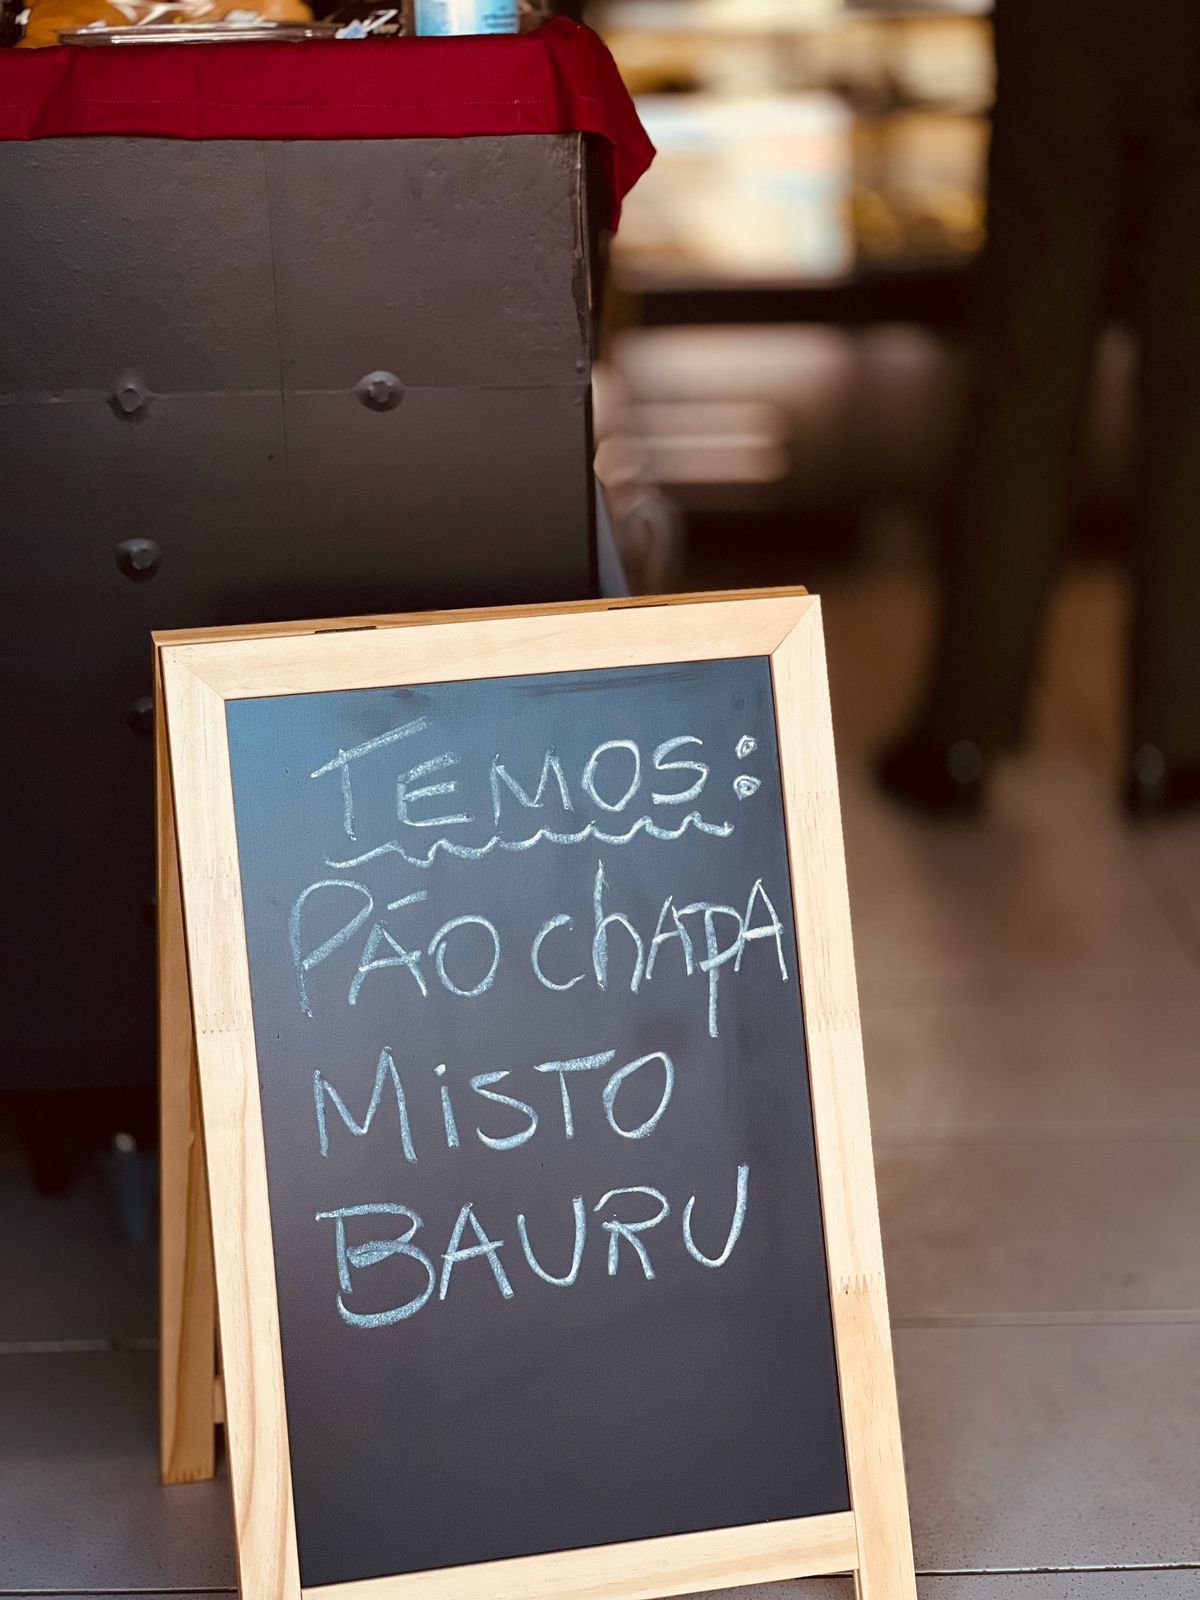 TEMOS:
PÃO ChAPA
MiSTO
BAURU